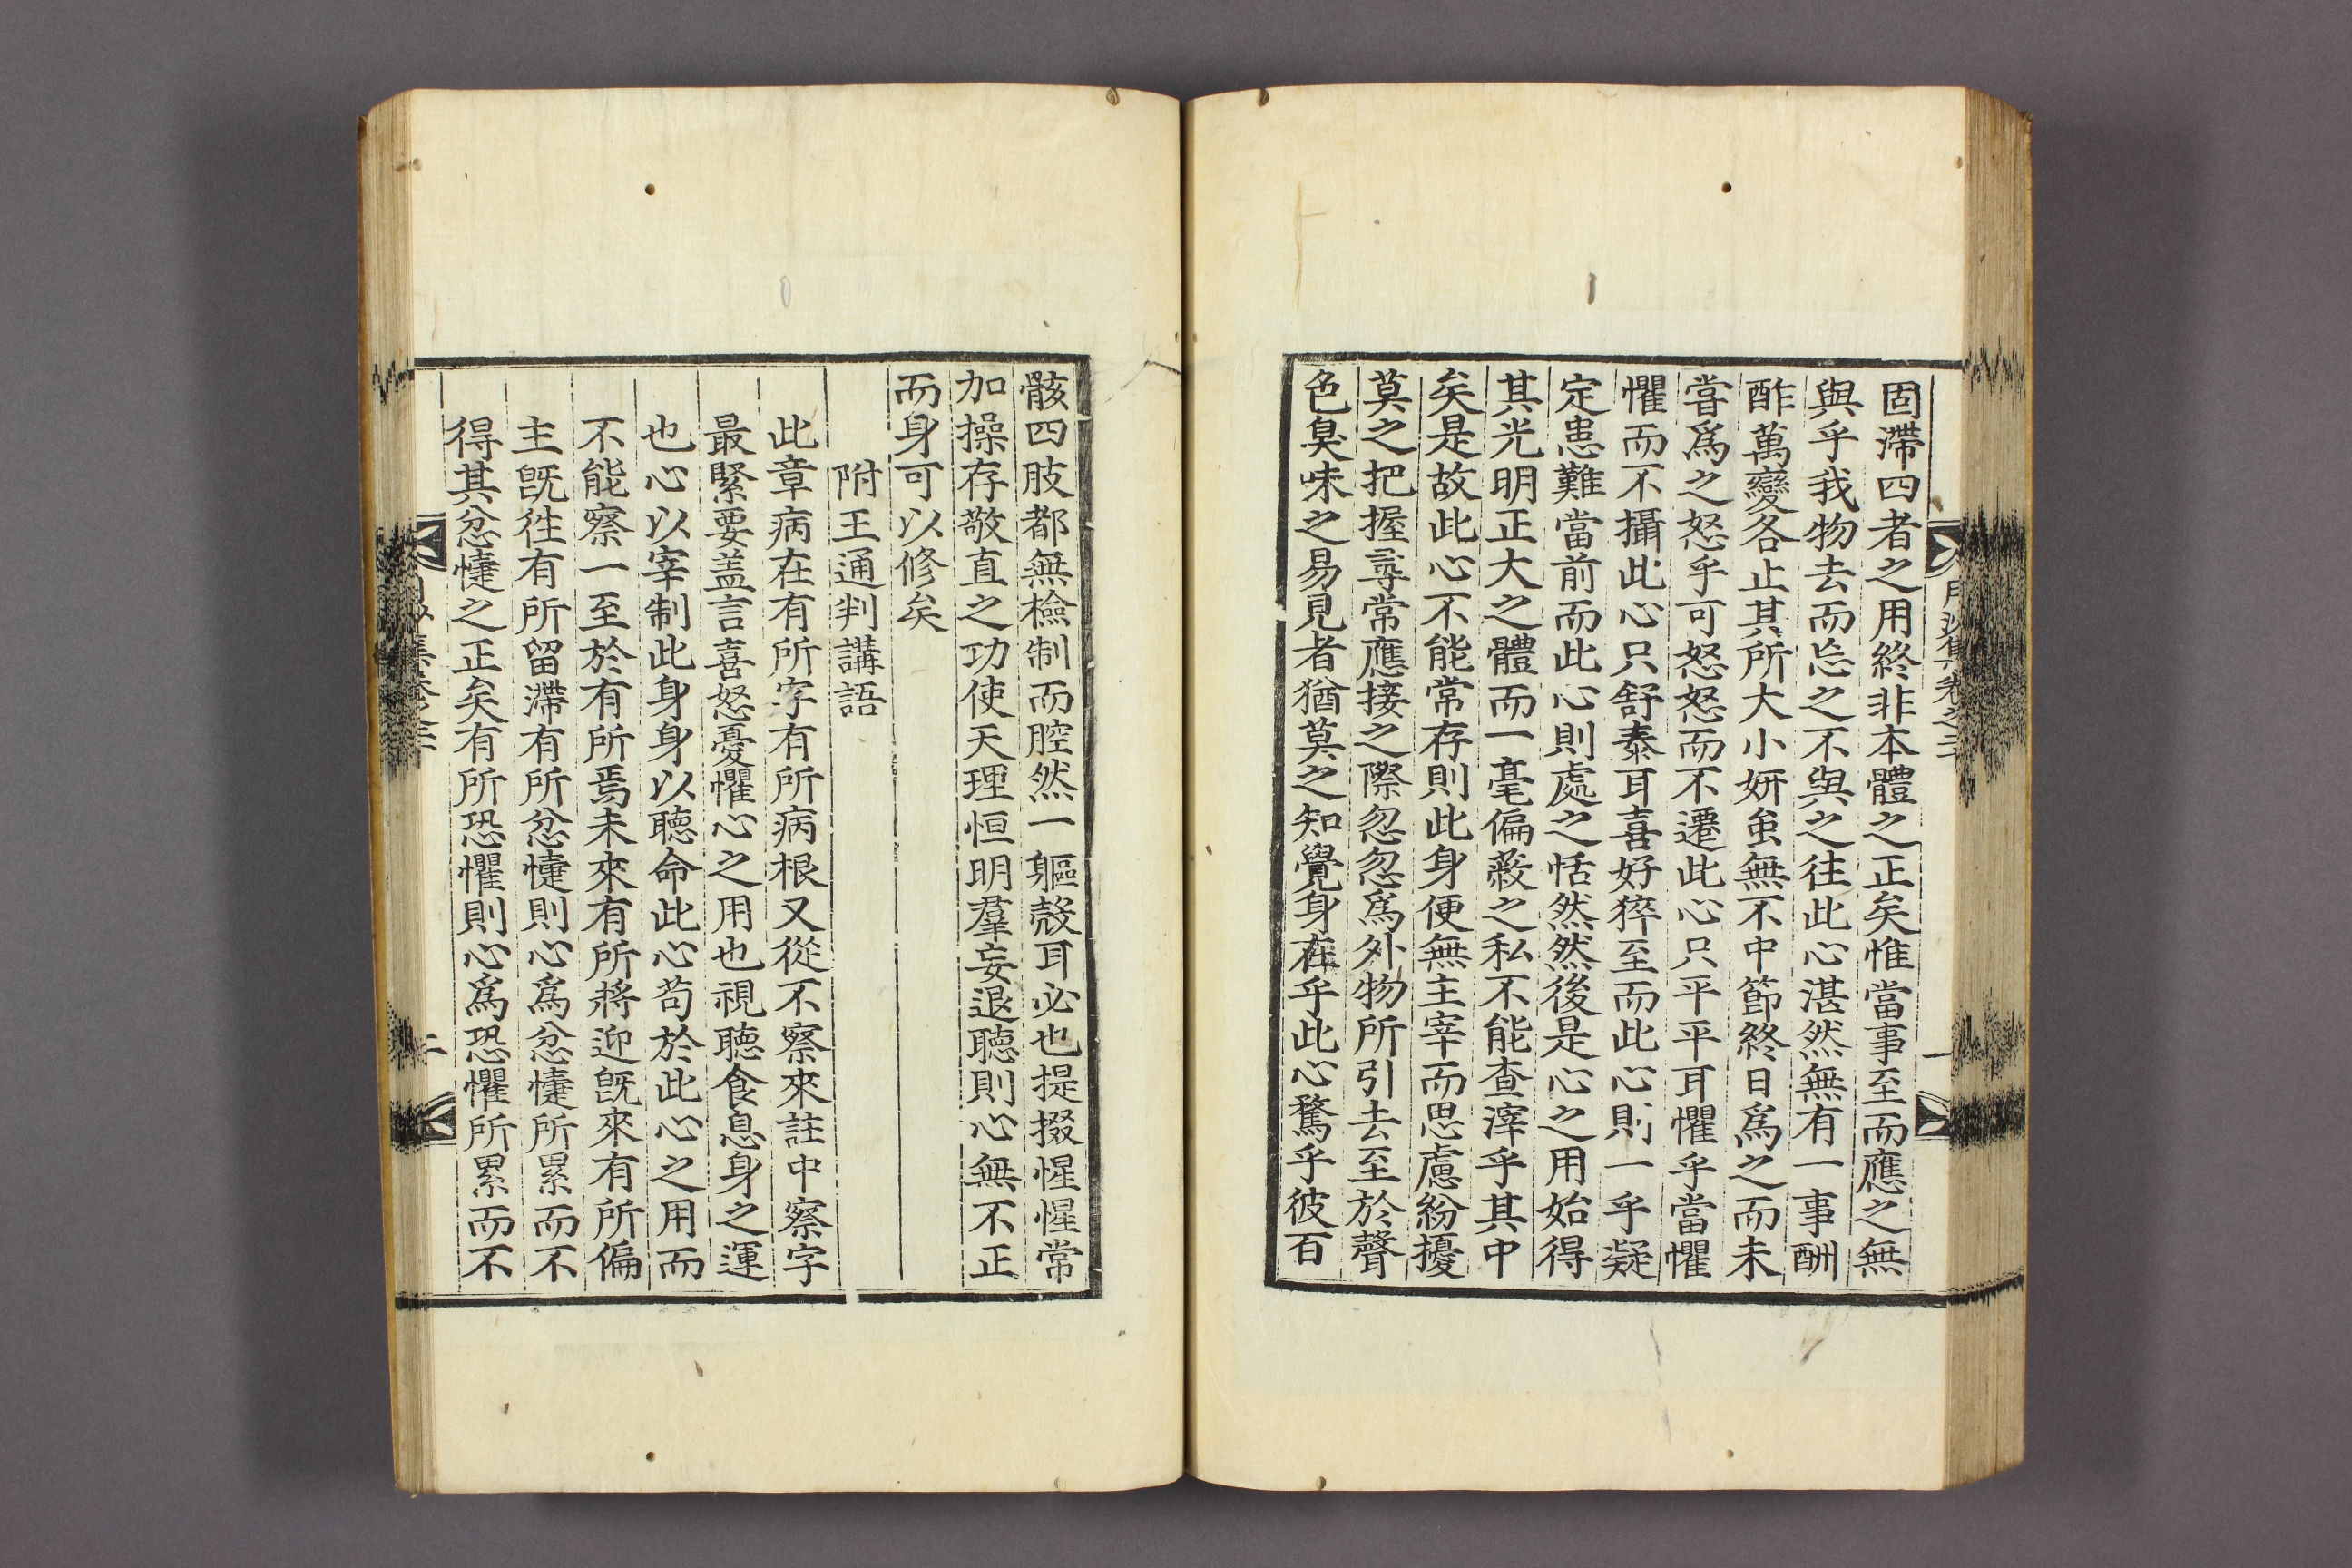 月沙集卷之三十
一
固滯四者之用終非本體之正矣惟當事至而應之無
與乎我物去而忘之不與之往此心湛然無有一事酬
酢萬變各止其所大小妍蚩無不中節終日爲之而未
嘗爲之怒乎可怒怒而不遷此心只平平耳懼乎當懼
懼而不攝此心只舒泰耳喜好猝至而此心則一乎凝
定患難當前而此心則處之恬然然後是心之用始得
其光明正大之體而一毫偏蔽之私不能查滓乎其中
矣是故此心不能常存則此身便無主宰而思慮紛擾
莫之把握尋常應接之際忽忽爲外物所引去至於聲
色臭味之易見者猶莫之知覺身在乎此心騖乎彼百
骸四肢都無檢制而腔然一軀殼耳必也提掇惺惺常
加操存敬直之功使天理恒明羣妄退聽則心無不正
而身可以修矣
附王通判講語
此章病在有所字有所病根又從不察來註中察字
最緊要盖言喜怒憂懼心之用也視聽食息身之運
也心以宰制此身身以聽命此心苟於此心之用而
不能察一至於有所焉未來有所將迎旣來有所偏
主旣徃有所留滯有所忿懥則心爲忿懥所累而不
得其忿懥之正矣有所恐懼則心爲恐懼所累而不
二